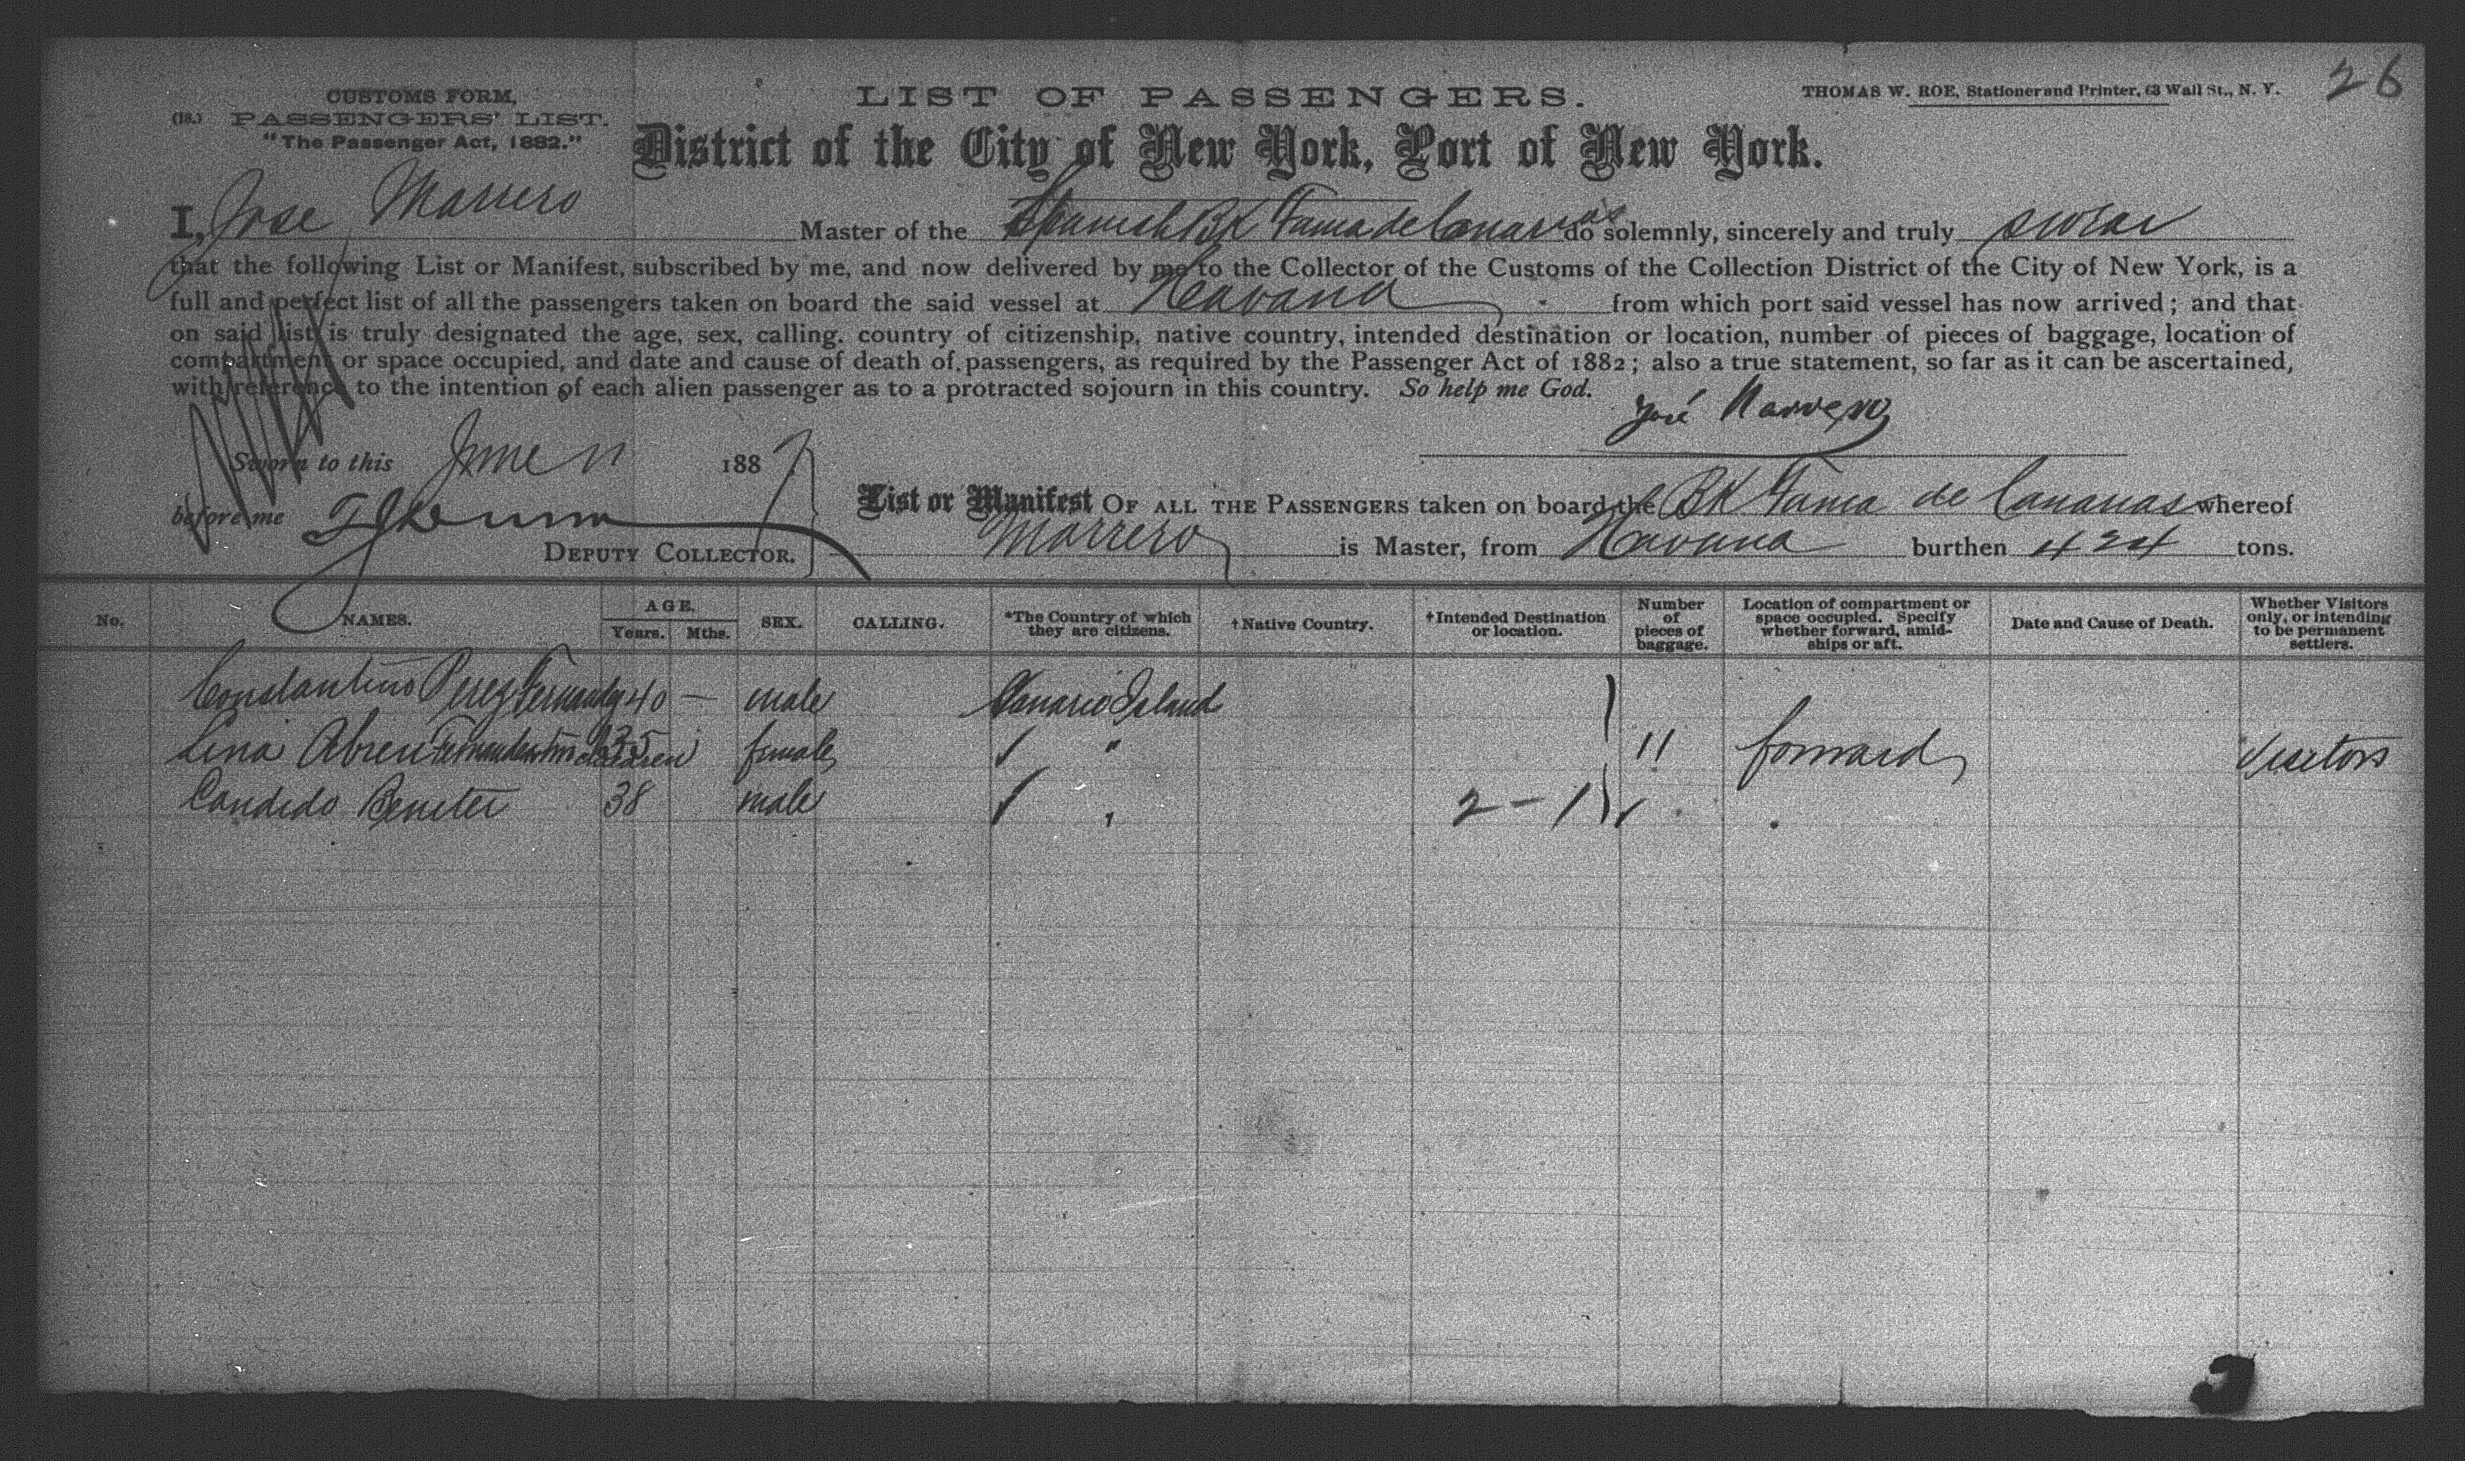 26
CUSTOMS FORM,
(18.) PASSENGERS' LIST.
"The Passenger Act, 1882."
LIST OF PASSENGERS.
THOMAS W. ROE, Stationer and Printer, 63 Wall St., N. Y.
District of the City of New York, Port of New York.
I, Jose Marrero Master of the Spanish BK Fama de Canarias do solemnly, sincerely and truly swear
that the following List or Manifest, subscribed by me, and now delivered by me to the Collector of the Customs of the Collection District of the City of New York, is a
full and perfect list of all the passengers taken on board the said vessel at Havana from which port said vessel has now arrived; and that
on said list is truly designated the age, sex, calling, country of citizenship, native country, intended destination or location, number of pieces of baggage, location of
compartment or space occupied, and date and cause of death of passengers, as required by the Passenger Act of 1882; also a true statement, so far as it can be ascertained,
with reference to the intention of each alien passenger as to a protracted sojourn in this country. So help me God.
José Marrero
Sworn to this June 11 1887
before me
DEPUTY COLLECTOR.
List or Manifest OF ALL THE PASSENGERS taken on board the BK Fama de Canarias whereof
Marrero is Master, from Havana burthen 424 tons.
No. NAMES. AGE. Years. Mths. SEX. CALLING. *The Country of which they are citizens. †Native Country. †Intended Destination or location. Number of pieces of baggage. Location of compartment or space occupied. Specify whether forward, amidships or aft. Date and Cause of Death. Whether Visitors only, or intending to be permanent settlers.
Constantino Perez Fernandez 40 — male Canario Island
Lina Abreu 35 female " 11 forward Visitors
Candido Benitez 38 male " 2 - 1